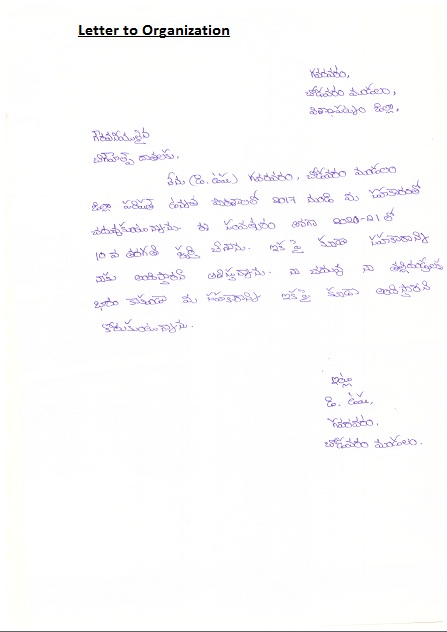 Letter to Organization
గవరవరం,
చోడవరం మండలం,
విశాఖపట్నం జిల్లా,
గౌరవనీయులైన
దాతలకు,
నేను (డి. ఉష) గవరవరం, చోడవరం మండలం
జిల్లా పరిషత్ ఉన్నత పాఠశాలలో 2017 నుండి మీ సహకారంతో
చదువుకుంటున్నాను. ఈ సంవత్సరం అనగా 2020-21 లో
10 వ తరగతి పూర్తి చేసాను. ఇక పై కూడా సహకారాన్ని
నాకు అందిస్తారని ఆశిస్తున్నాను. నా చదువు నా తల్లిదండ్రులకు
భారం కాకుండా మీ సహకారాన్ని ఇక పై కూడా అందిస్తారని
కోరుకుంటున్నాను.
ఇట్లు
డి. ఉష,
గవరవరం,
చోడవరం మండలం.